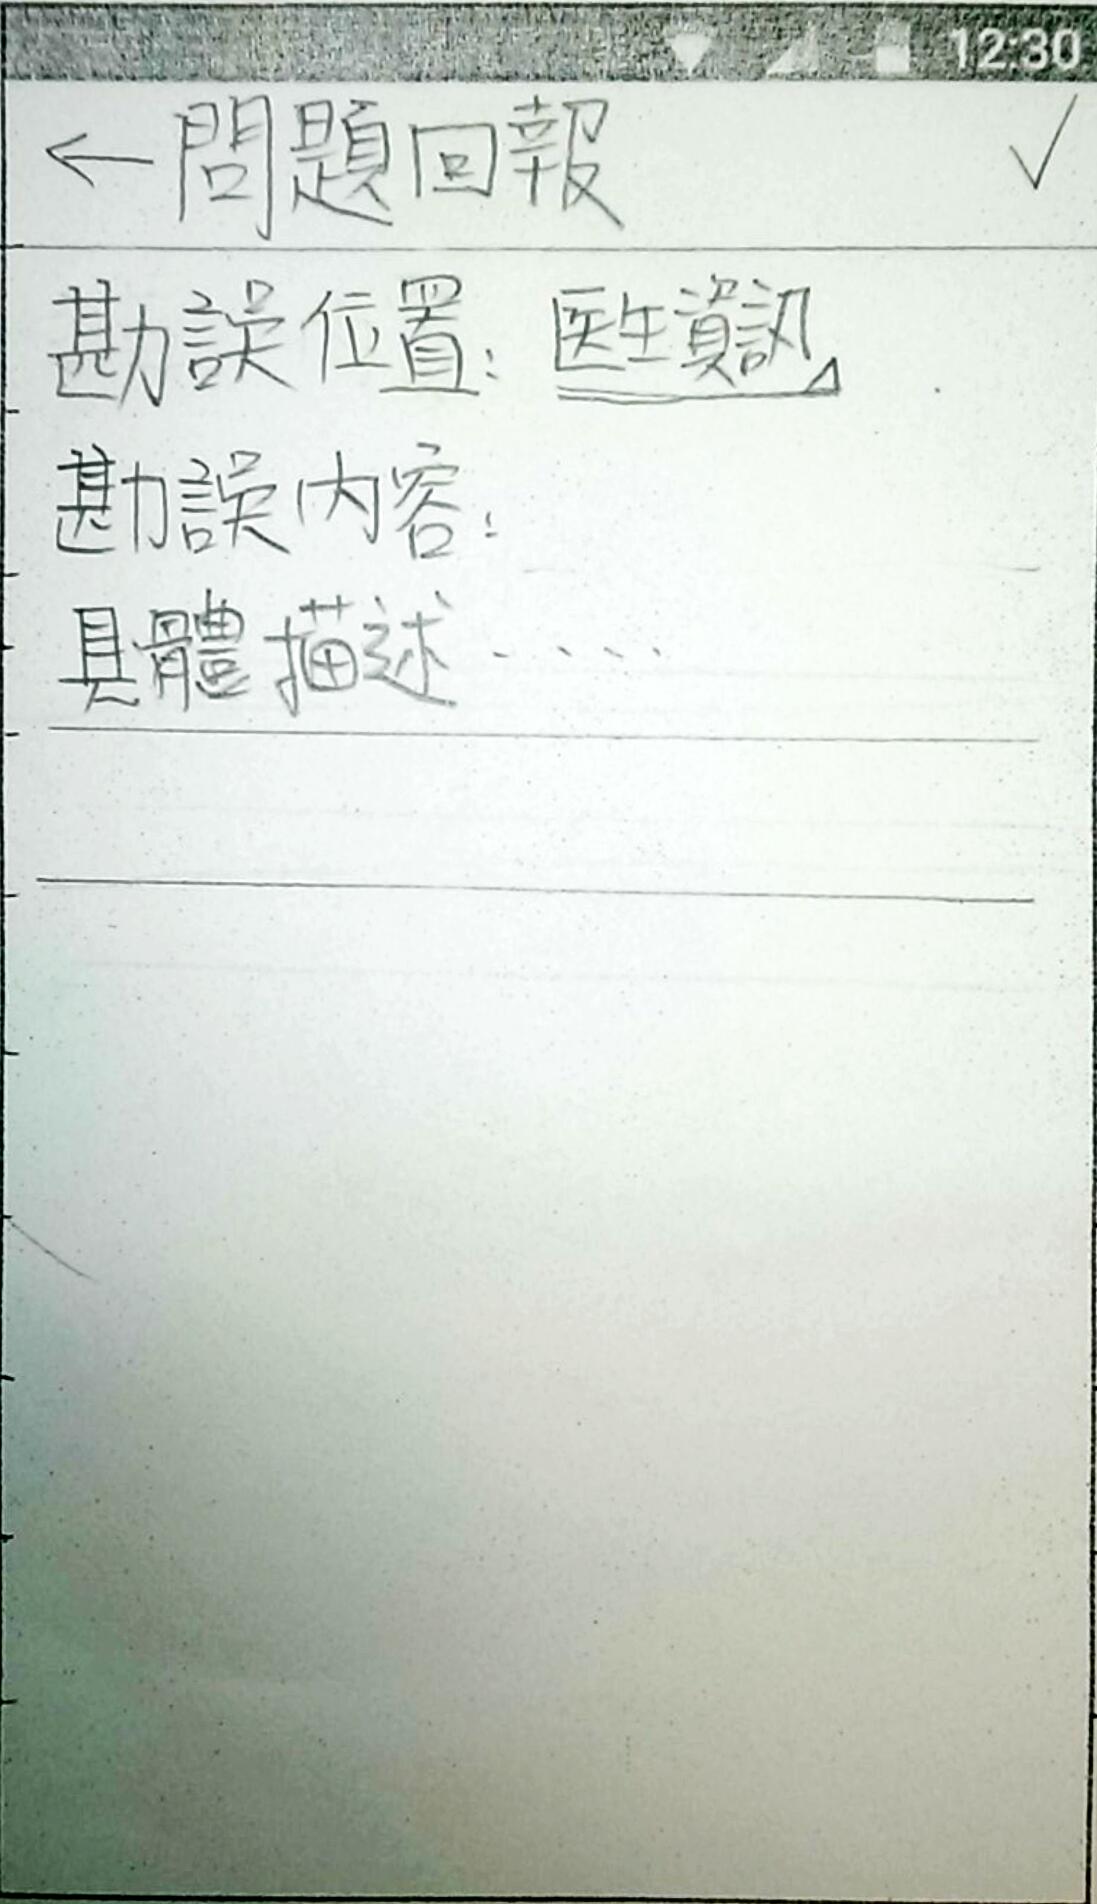 12:30
←問題回報 ✓
勘誤位置: 医生資訊
勘誤內容:
具體描述.....